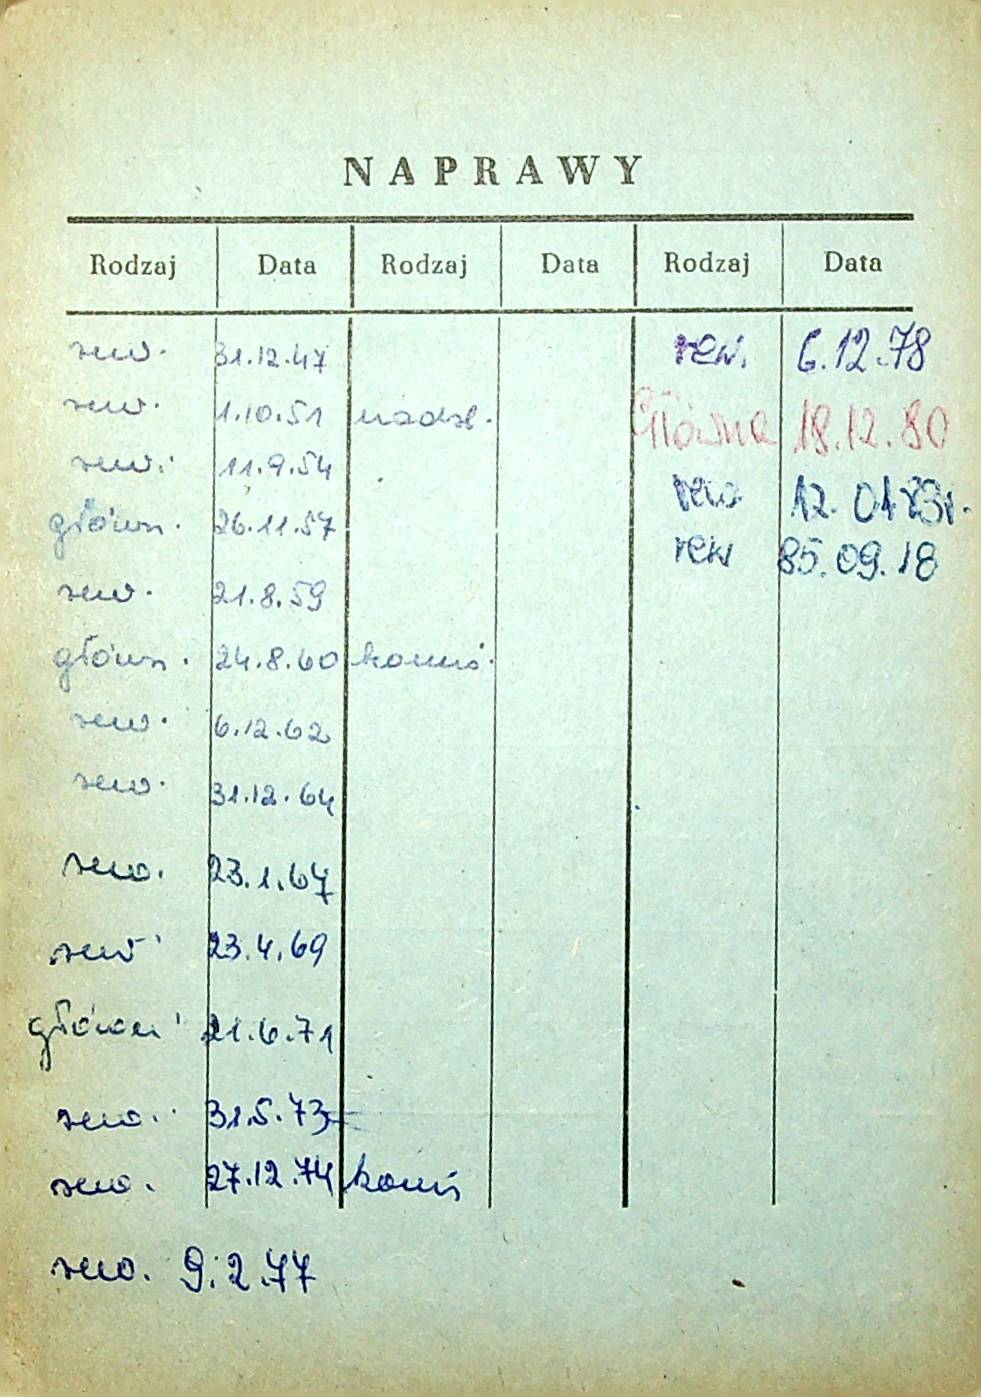 NAPRAWY
Rodzaj Data Rodzaj Data Rodzaj Data
rew. 31.12.47 rew. 6.12.78
rew. 1.10.51 nadzw. Główna 18.12.80
rew. 11.9.54 rew 12.01.83r.
główn. 26.11.57 rew 85.09.18
rew. 21.8.59
główn. 24.8.60 komis.
rew. 6.12.62
rew. 31.12.64
rew. 23.1.67
rew. 23.4.69
główn. 21.6.71
rew. 31.5.73
rew. 27.12.74 komis
rew. 9.2.77